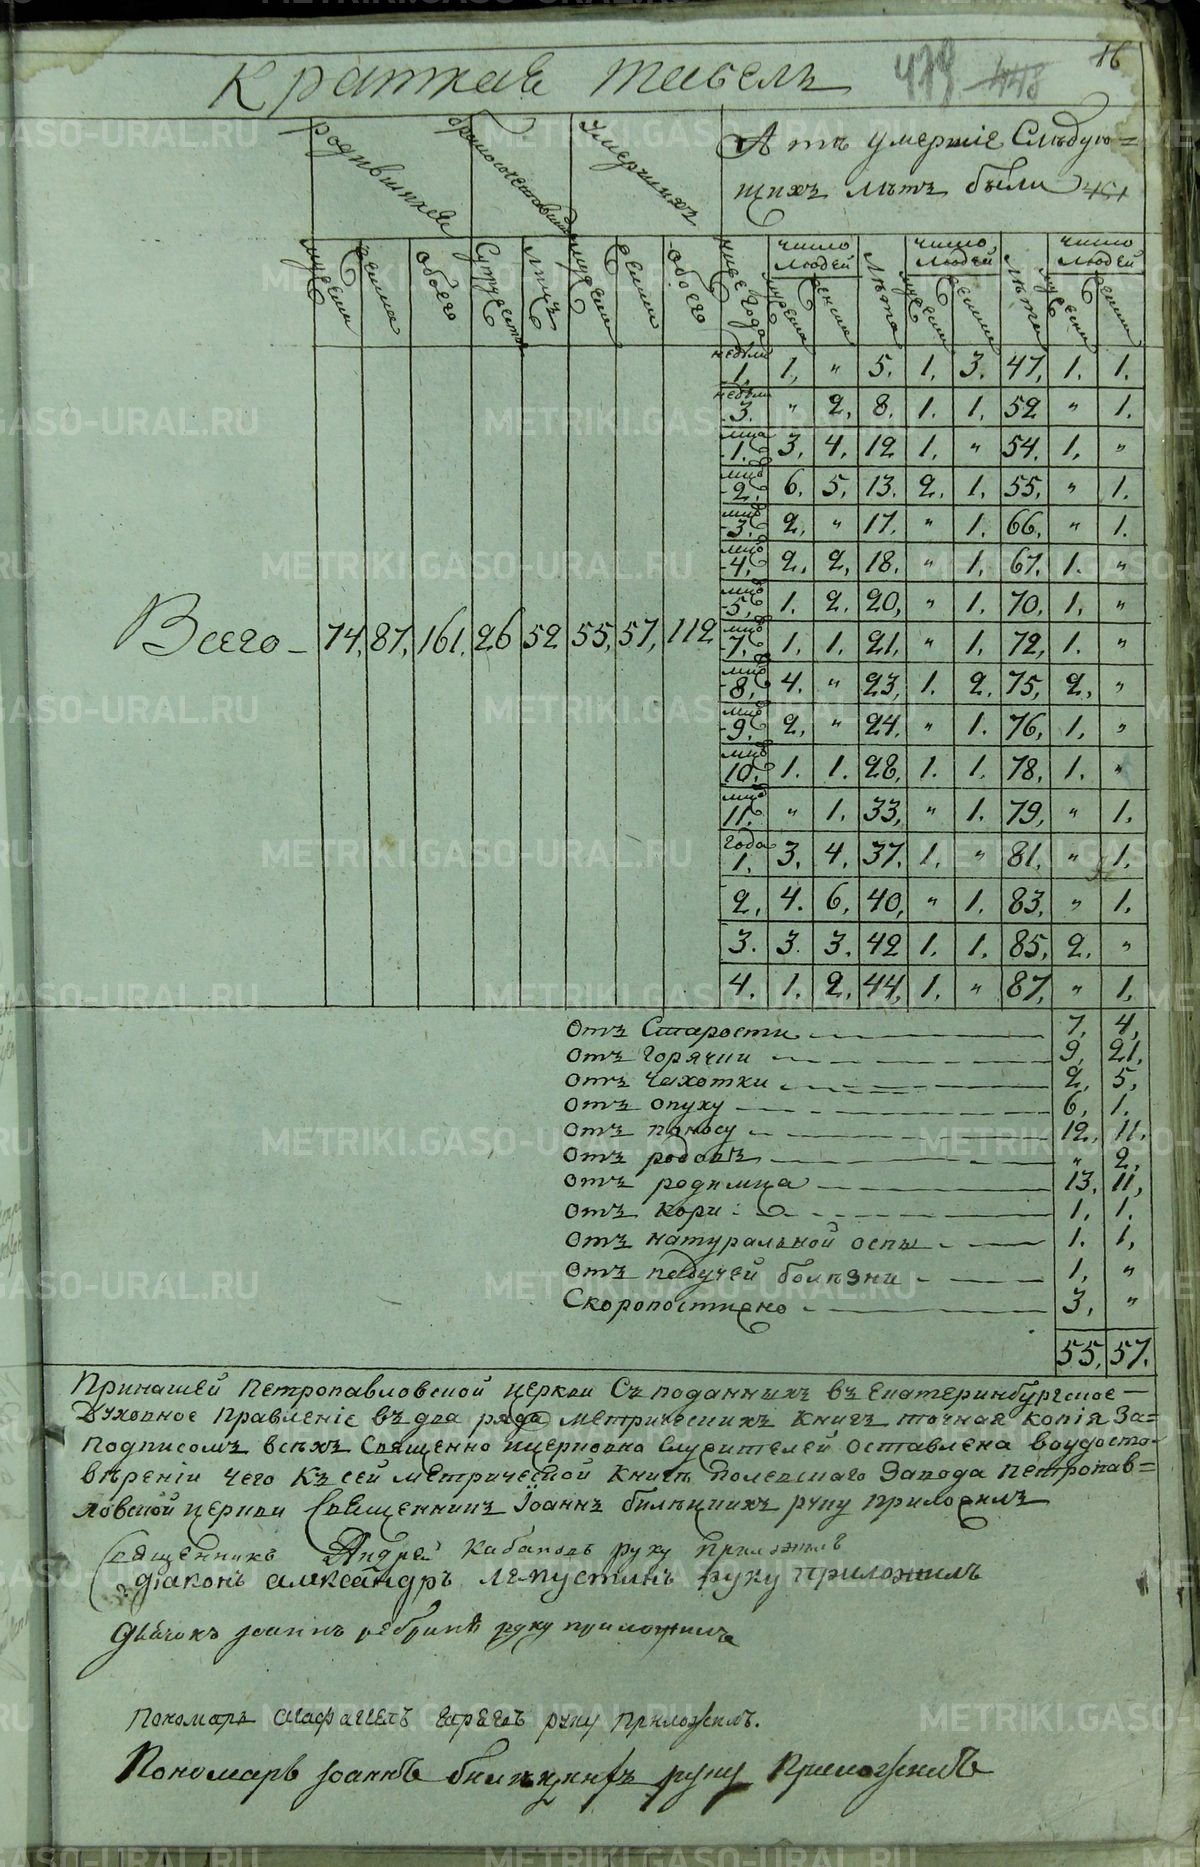 16
479 448
Краткая табель
родившихся
бракосочетавшихся
умершихъ
А тѣ умершіе Слѣдую=
щихъ лѣтъ были
муженска
женска
обоего
Супружествъ
лицъ
муженска
женска
обоего
число
людей
Лѣта
число
людей
лѣта
число
людей
недѣли 1. 1, " 5. 1. 3. 47, 1. 1.
недѣли 3. " 2, 8. 1. 1. 52 " 1.
мца 1. 3. 4. 12 1. " 54. 1, "
мцъ 2, 6. 5. 13. 2. 1. 55, " 1.
мцъ 3. 2, " 17. " 1. 66, " 1.
мцъ 4, 2, 2, 18. " 1. 67, 1. "
мцъ 5, 1. 2. 20, " 1. 70, 1, "
Всего 74, 87, 161, 26 52 55, 57, 112
мцъ 7, 1. 1. 21, " 1. 72, 1. "
мцъ 8, 4. " 23, 1. 2. 75, 2, "
мцъ 9, 2, " 24, " 1. 76, 1, "
мцъ 10, 1. 1. 28, 1. 1. 78, 1. "
мцъ 11. " 1. 33, " 1. 79, " 1,
года 1. 3. 4. 37. 1. " 81. " 1.
2, 4. 6, 40, " 1. 83, " 1.
3. 3. 3. 42 1. 1. 85, 2. "
4. 1. 2. 44, 1. " 87, " 1.
отъ Старости 7, 4,
отъ горячки 9, 21,
отъ чахотки 2, 5,
отъ опуху 6, 1.
отъ поносу 12, 11.
отъ родовъ " 2,
отъ родимца 13, 11,
отъ кори 1, 1.
отъ натуральной оспы 1. 1,
отъ падучей болѣзни 1, "
Скоропостижно 3, "
55, 57.
При нашей Петропавловской церкви Съ поданныхъ въ Екатеринбургское
Духовное Правленіе въ два ряда метрическихъ книгъ точная копія За=
подписомъ всѣхъ Священно ицерковно Служителей оставлена воудосто=
вѣреніи чего Къ сей метрической книгѣ полевскаго Завода петропав=
ловской церкви Священникъ Іоаннъ руку приложилъ
Священникъ Андрей Кабаковъ руку приложилъ
діаконъ александръ лепустинъ руку приложилъ
дьячокъ іоаннъ руку приложилъ
пономарь руку приложилъ.
Пономарь іоаннъ руку приложилъ
METRIKI.GASO-URAL.RU